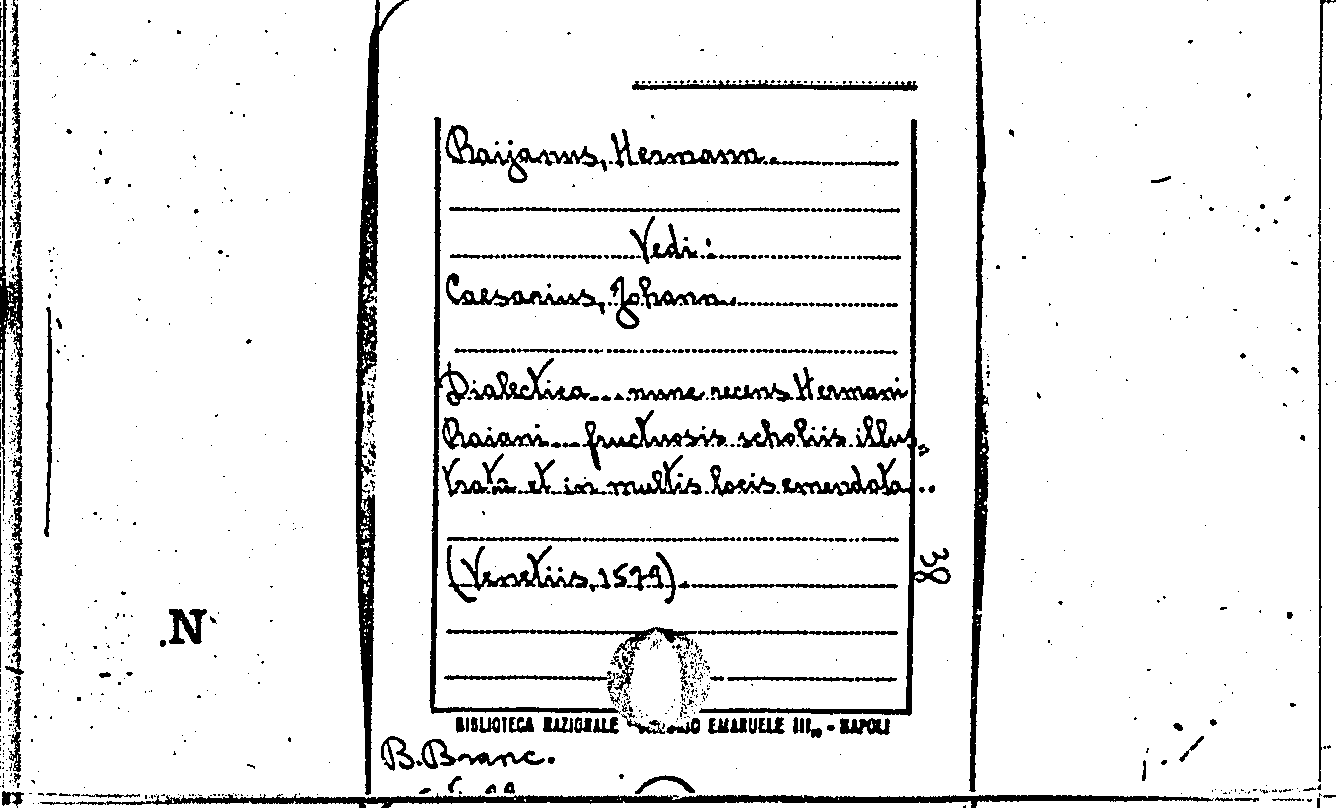 Raijanus, Hermann.
Vedi:
Caesarius, Johann.
Dialectica... nunc recens Hermani
Raiani... fructuosis scholiis illus„
tratā et in multis locis emendata...
(Venetiis, 1579).
38
N
BIBLIOTECA NAZIONALE EMANUELE III„ - NAPOLI
B. Branc.